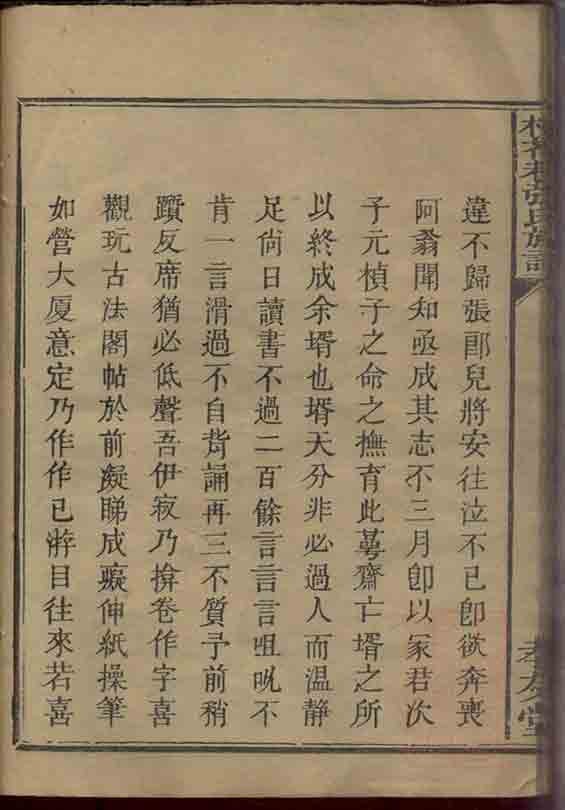 張氏族譜
違不歸張郎兒將安往泣不已卽欲奔喪
阿翁聞知亟成其志不三月卽以冢君次
子元楨予之命之撫育此蕚齋亡壻之所
以終成余壻也壻天分非必過人而溫靜
足尙日讀書不過二百餘言言言咀呪不
肯一言滑過不自背誦再三不質予前稍
躓反席猶必低聲吾伊寂乃揜卷作字喜
觀玩古法閣帖於前凝睇成癡伸紙操筆
如營大厦意定乃作作已睜目往來若喜
孝友堂